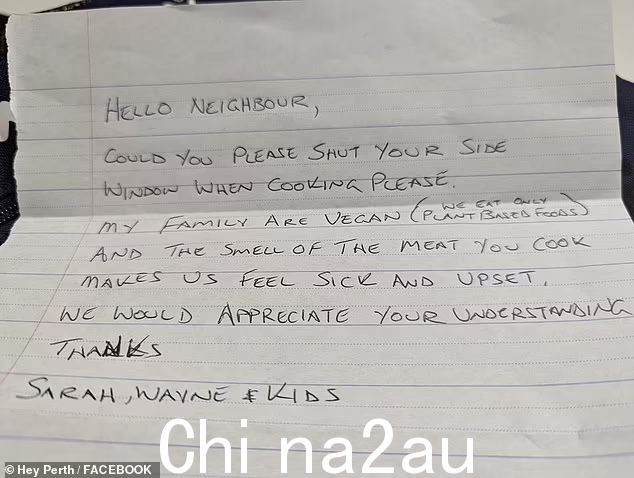 HELLO NEIGHBOUR,
COULD YOU PLEASE SHUT YOUR SIDE
WINDOW WHEN COOKING PLEASE.
MY FAMILY ARE VEGAN (WE EAT ONLY
PLANT BASED FOODS)
AND THE SMELL OF THE MEAT YOU COOK
MAKES US FEEL SICK AND UPSET.
WE WOULD APPRECIATE YOUR UNDERSTANDING
THANKS
SARAH, WAYNE & KIDS
Chi na2au
© Hey Perth / FACEBOOK